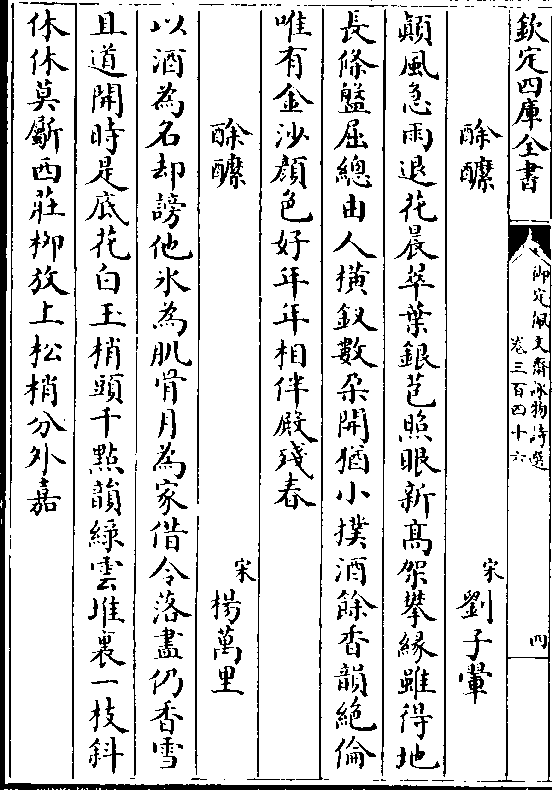 欽定四庫全書
御定佩文齋詠物詩選
卷三百四十六
四
酴醾
宋
劉子翬
顛風急雨退花晨翠葉銀苞照眼新高架攀緣雖得地
長條盤屈總由人橫釵數朶開猶小撲酒餘香韻絶倫
唯有金沙顔色好年年相伴殿殘春
酴醾
宋
楊萬里
以酒為名却謗他氷為肌骨月為家借令落盡仍香雪
且道開時是底花白玉梢頭千點韻綠雲堆裏一枝斜
休休莫斸西莊柳放上松梢分外嘉